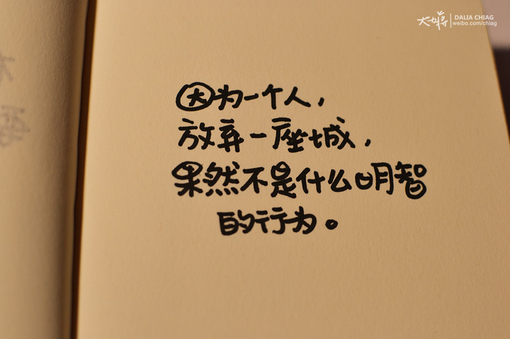 DALIA CHIAG
weibo.com/chiag
因为一个人，
放弃一座城，
果然不是什么明智
的行为。